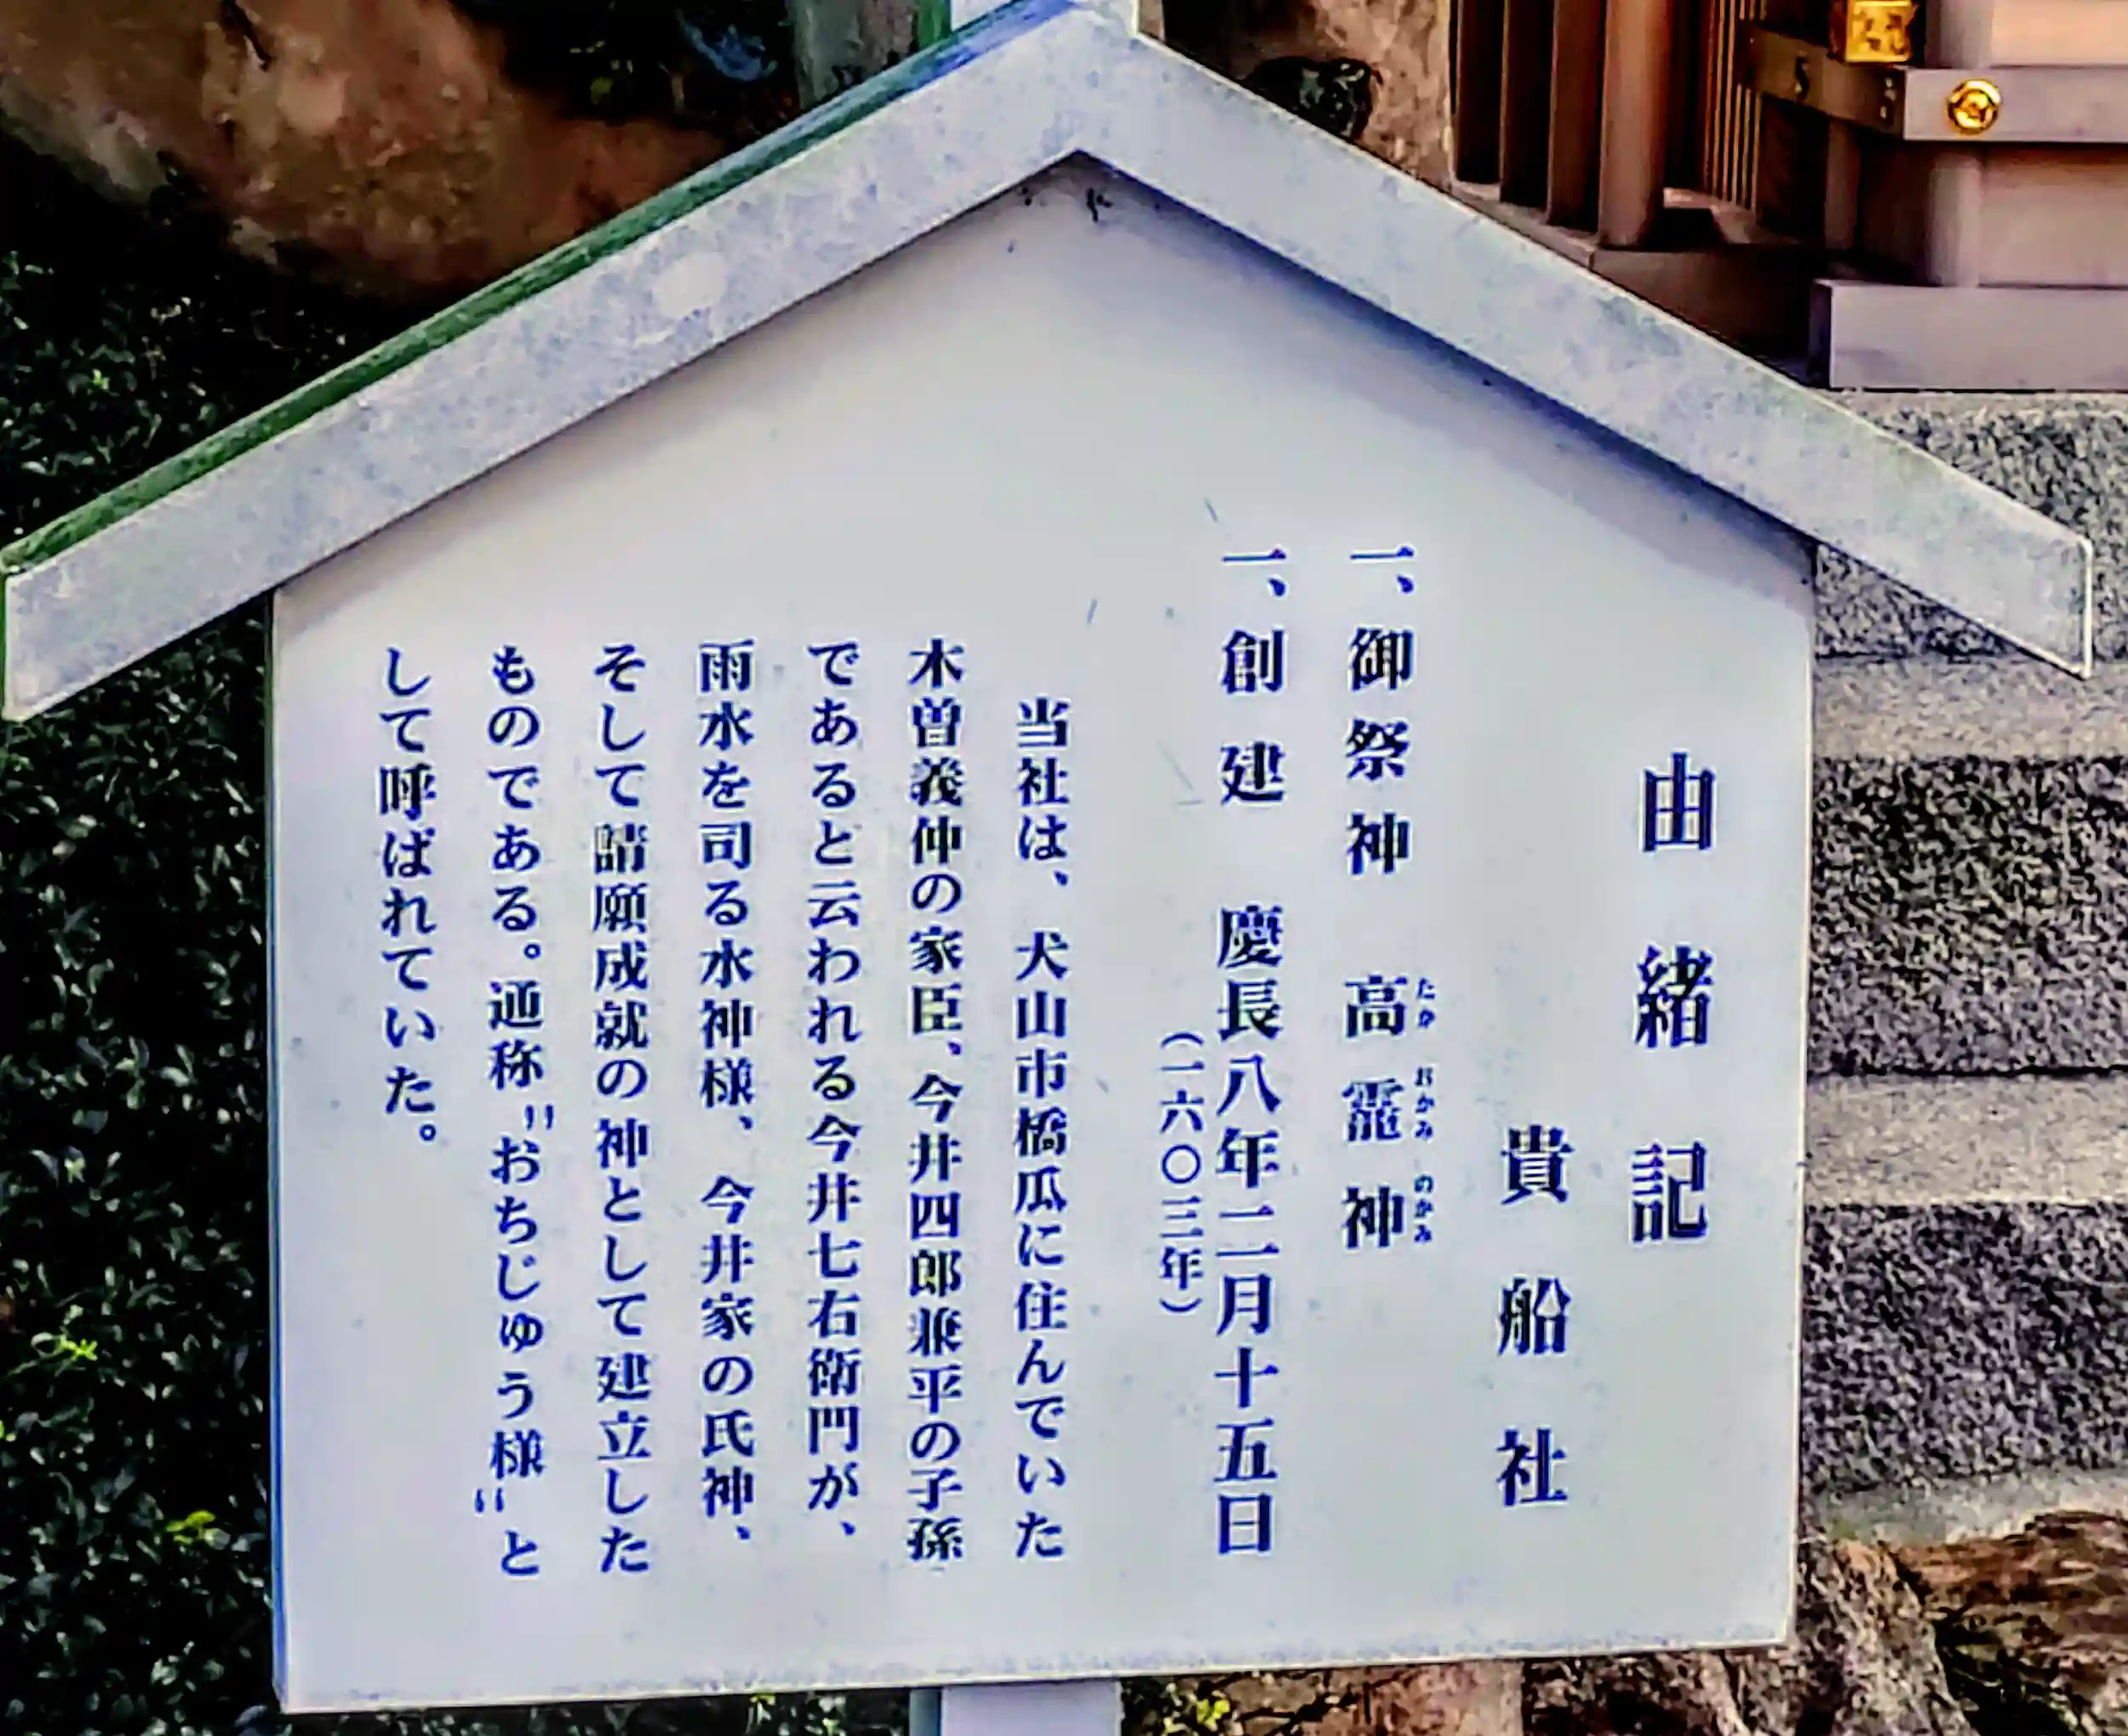 由緒記
貴船社
一、御祭神　高龗神
たか　おかみ　のかみ
一、創建　慶長八年二月十五日
（一六〇三年）
当社は、犬山市橋爪に住んでいた
木曽義仲の家臣、今井四郎兼平の子孫
であると云われる今井七右衛門が、
雨水を司る水神様、今井家の氏神、
そして請願成就の神として建立した
ものである。通称〝おちじゅう様〟と
して呼ばれていた。